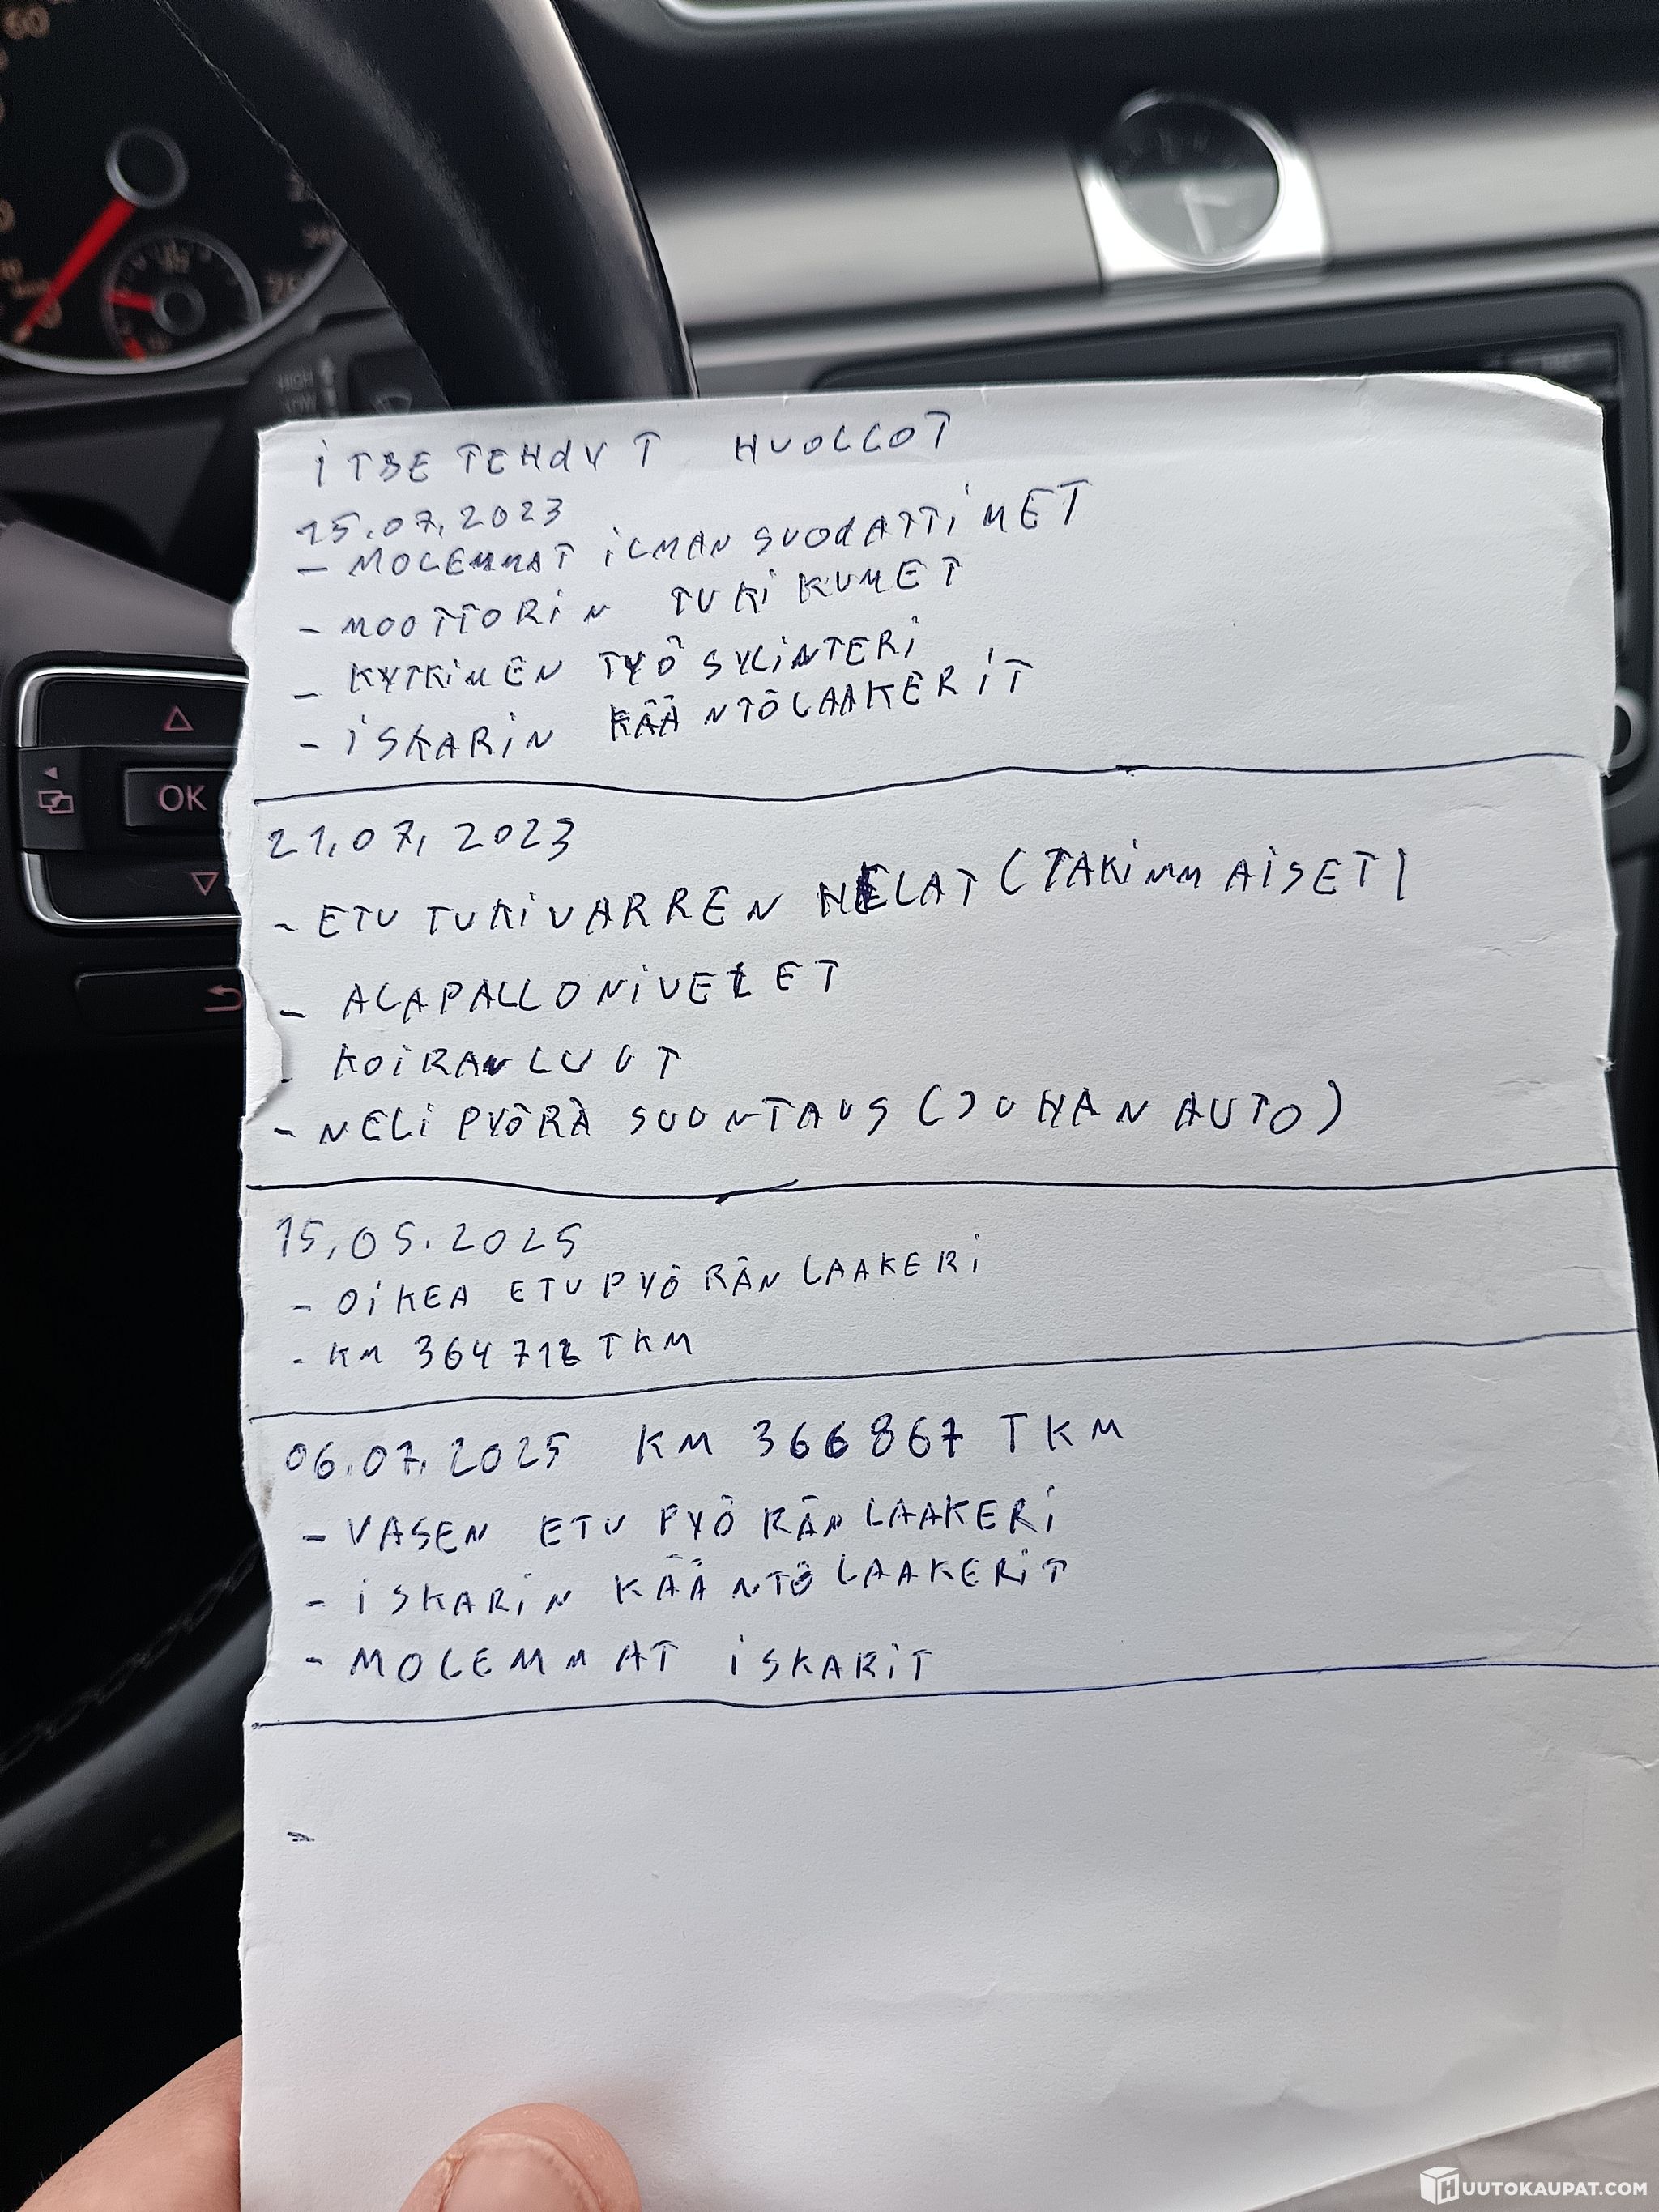 ITSE TEHDYT HUOLLOT
15.07.2023
- MOLEMMAT ILMAN SUODATTIMET
- MOOTTORIN TUKIKUMET
- KYTKIMEN TYÖ SYLINTERI
- ISKARIN KÄÄNTÖLAAKERIT
21.07.2023
- ETU TUKIVARREN HELAT (TAKIMMAISET)
- ALAPALLONIVELET
- KOIRANLUUT
- NELI PYÖRÄ SUUNTAUS (JUHAN AUTO)
15.05.2025
- OIKEA ETUPYÖRÄN LAAKERI
- KM TKM
06.07.2025 KM 366867 TKM
- VASEN ETU PYÖRÄN LAAKERI
- ISKARIN KÄÄNTÖLAAKERIT
- MOLEMMAT ISKARIT
-
OK
HIGH
LOW
HUUTOKAUPAT.COM